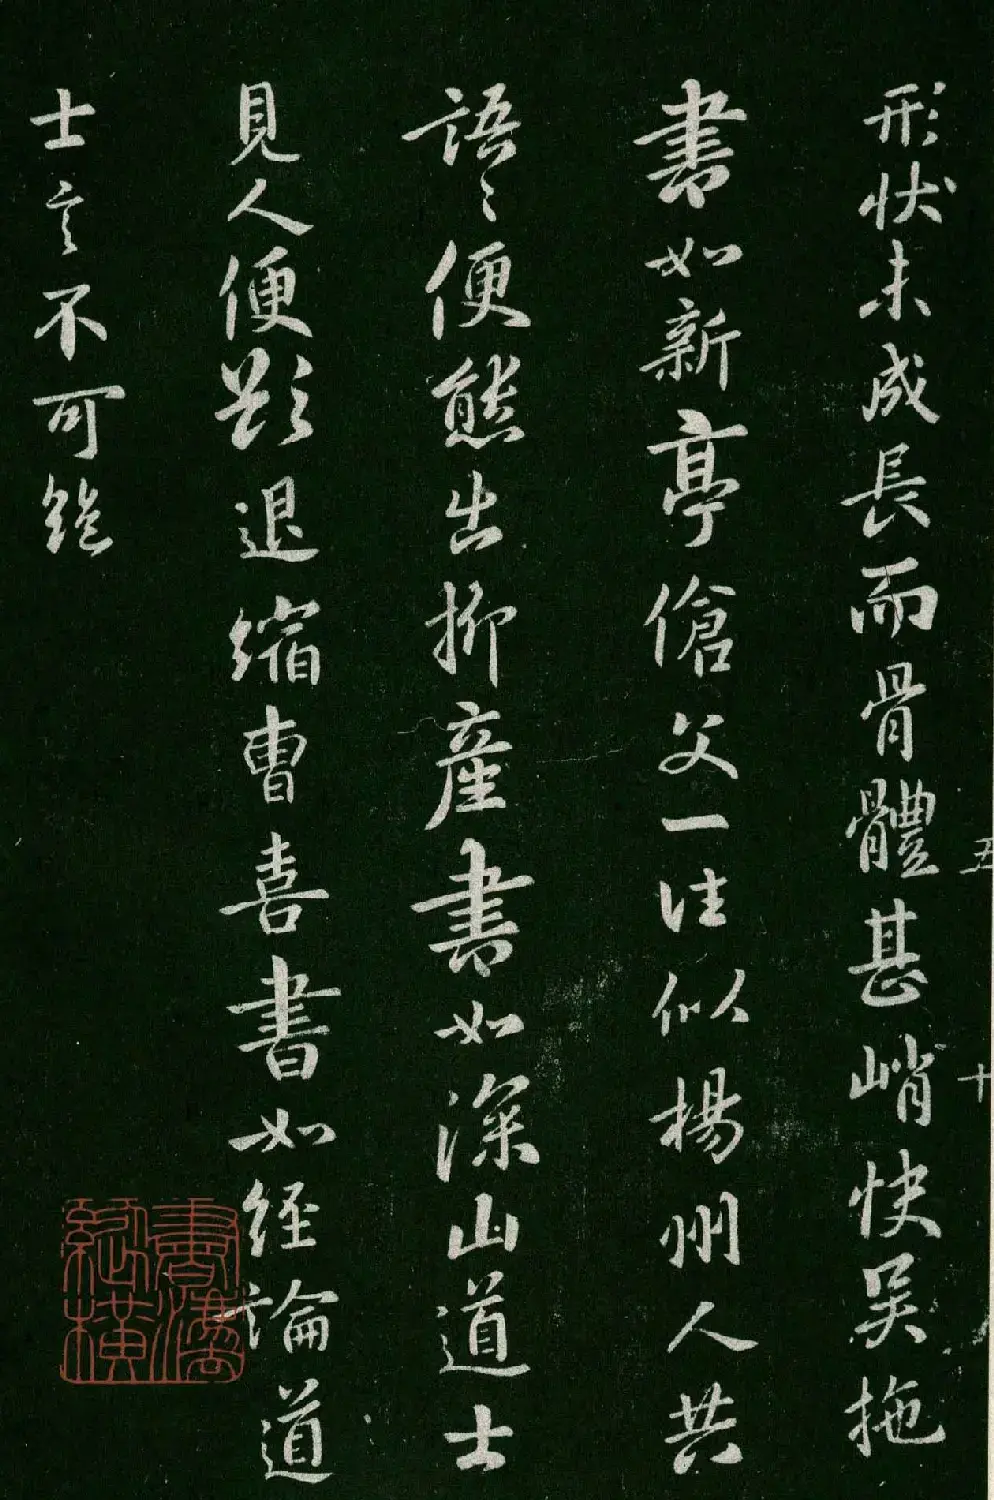 形狀未成長而骨體甚峭快吳拖
書如新亭傖父一往似楊州人共
語〻便態出柳產書如深山道士
見人便欲退縮曹喜書如經論道
士言不可絕
五十
書灋縱橫